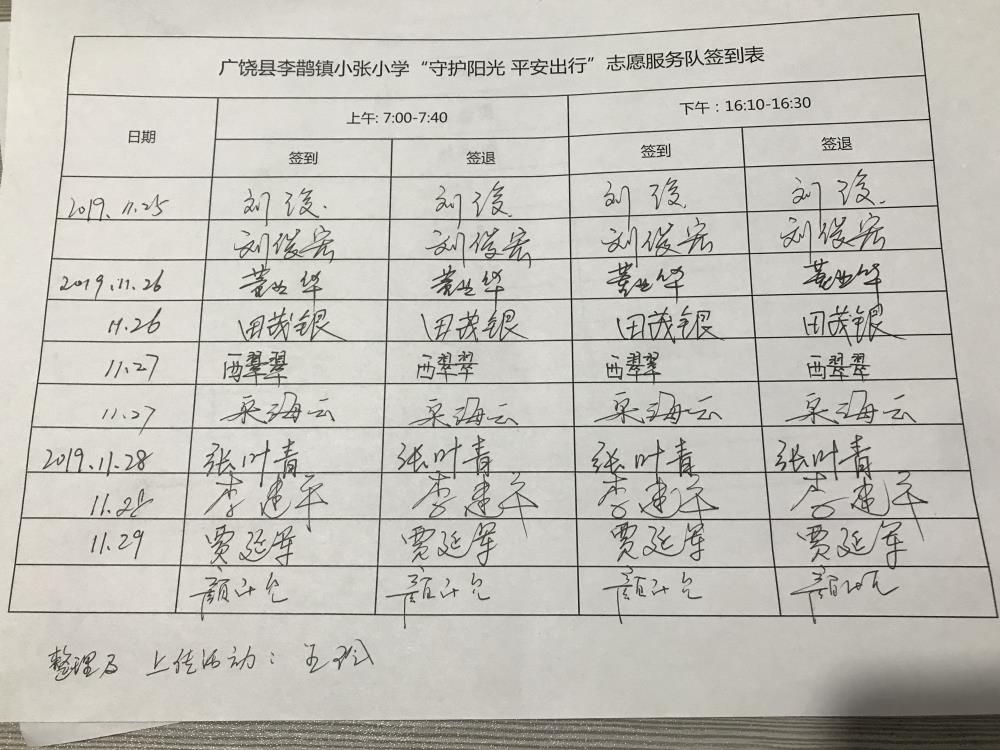 广饶县李鹊镇小张小学“守护阳光 平安出行”志愿服务队签到表
日期 上午: 7:00-7:40 下午：16:10-16:30
签到 签退 签到 签退
2019.11.25 刘俊. 刘俊. 刘俊. 刘俊.
刘俊宏 刘俊宏 刘俊宏 刘俊宏
2019.11.26 董业华 董业华 董业华 董业华
11.26 田茂银 田茂银 田茂银 田茂银
11.27 西翠翠 西翠翠 西翠翠 西翠翠
11.27 采海云 采海云 采海云 采海云
2019.11.28 张叶青 张叶青 张叶青 张叶青
11.28 李建平 李建平 李建平 李建平
11.29 贾延军 贾延军 贾延军 贾延军
颜
整理及上传活动：王